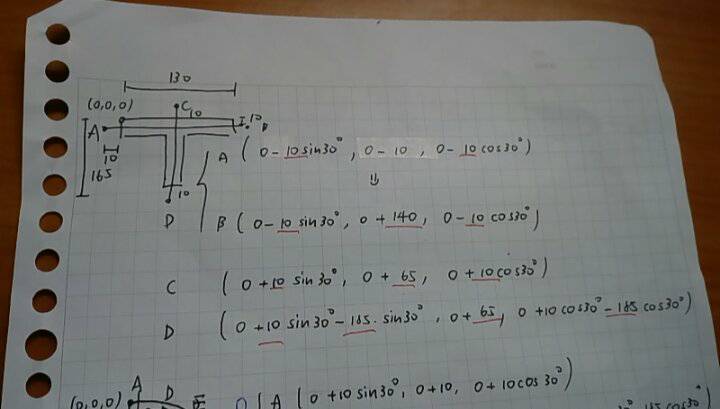 130
(0,0,0) C 10 10 B
A
10
165
10
D
A ( 0-10sin30°, 0-10, 0-10cos30°)
⇓
B ( 0-10 sin30°, 0+140, 0-10 cos30°)
C ( 0+10 sin30°, 0+65, 0+10cos30°)
D ( 0+10 sin30°-185·sin30°, 0+65, 0+10cos30°-185cos30°)
(0,0,0) A D
A ( 0+10sin30°, 0+10, 0+10cos30°)